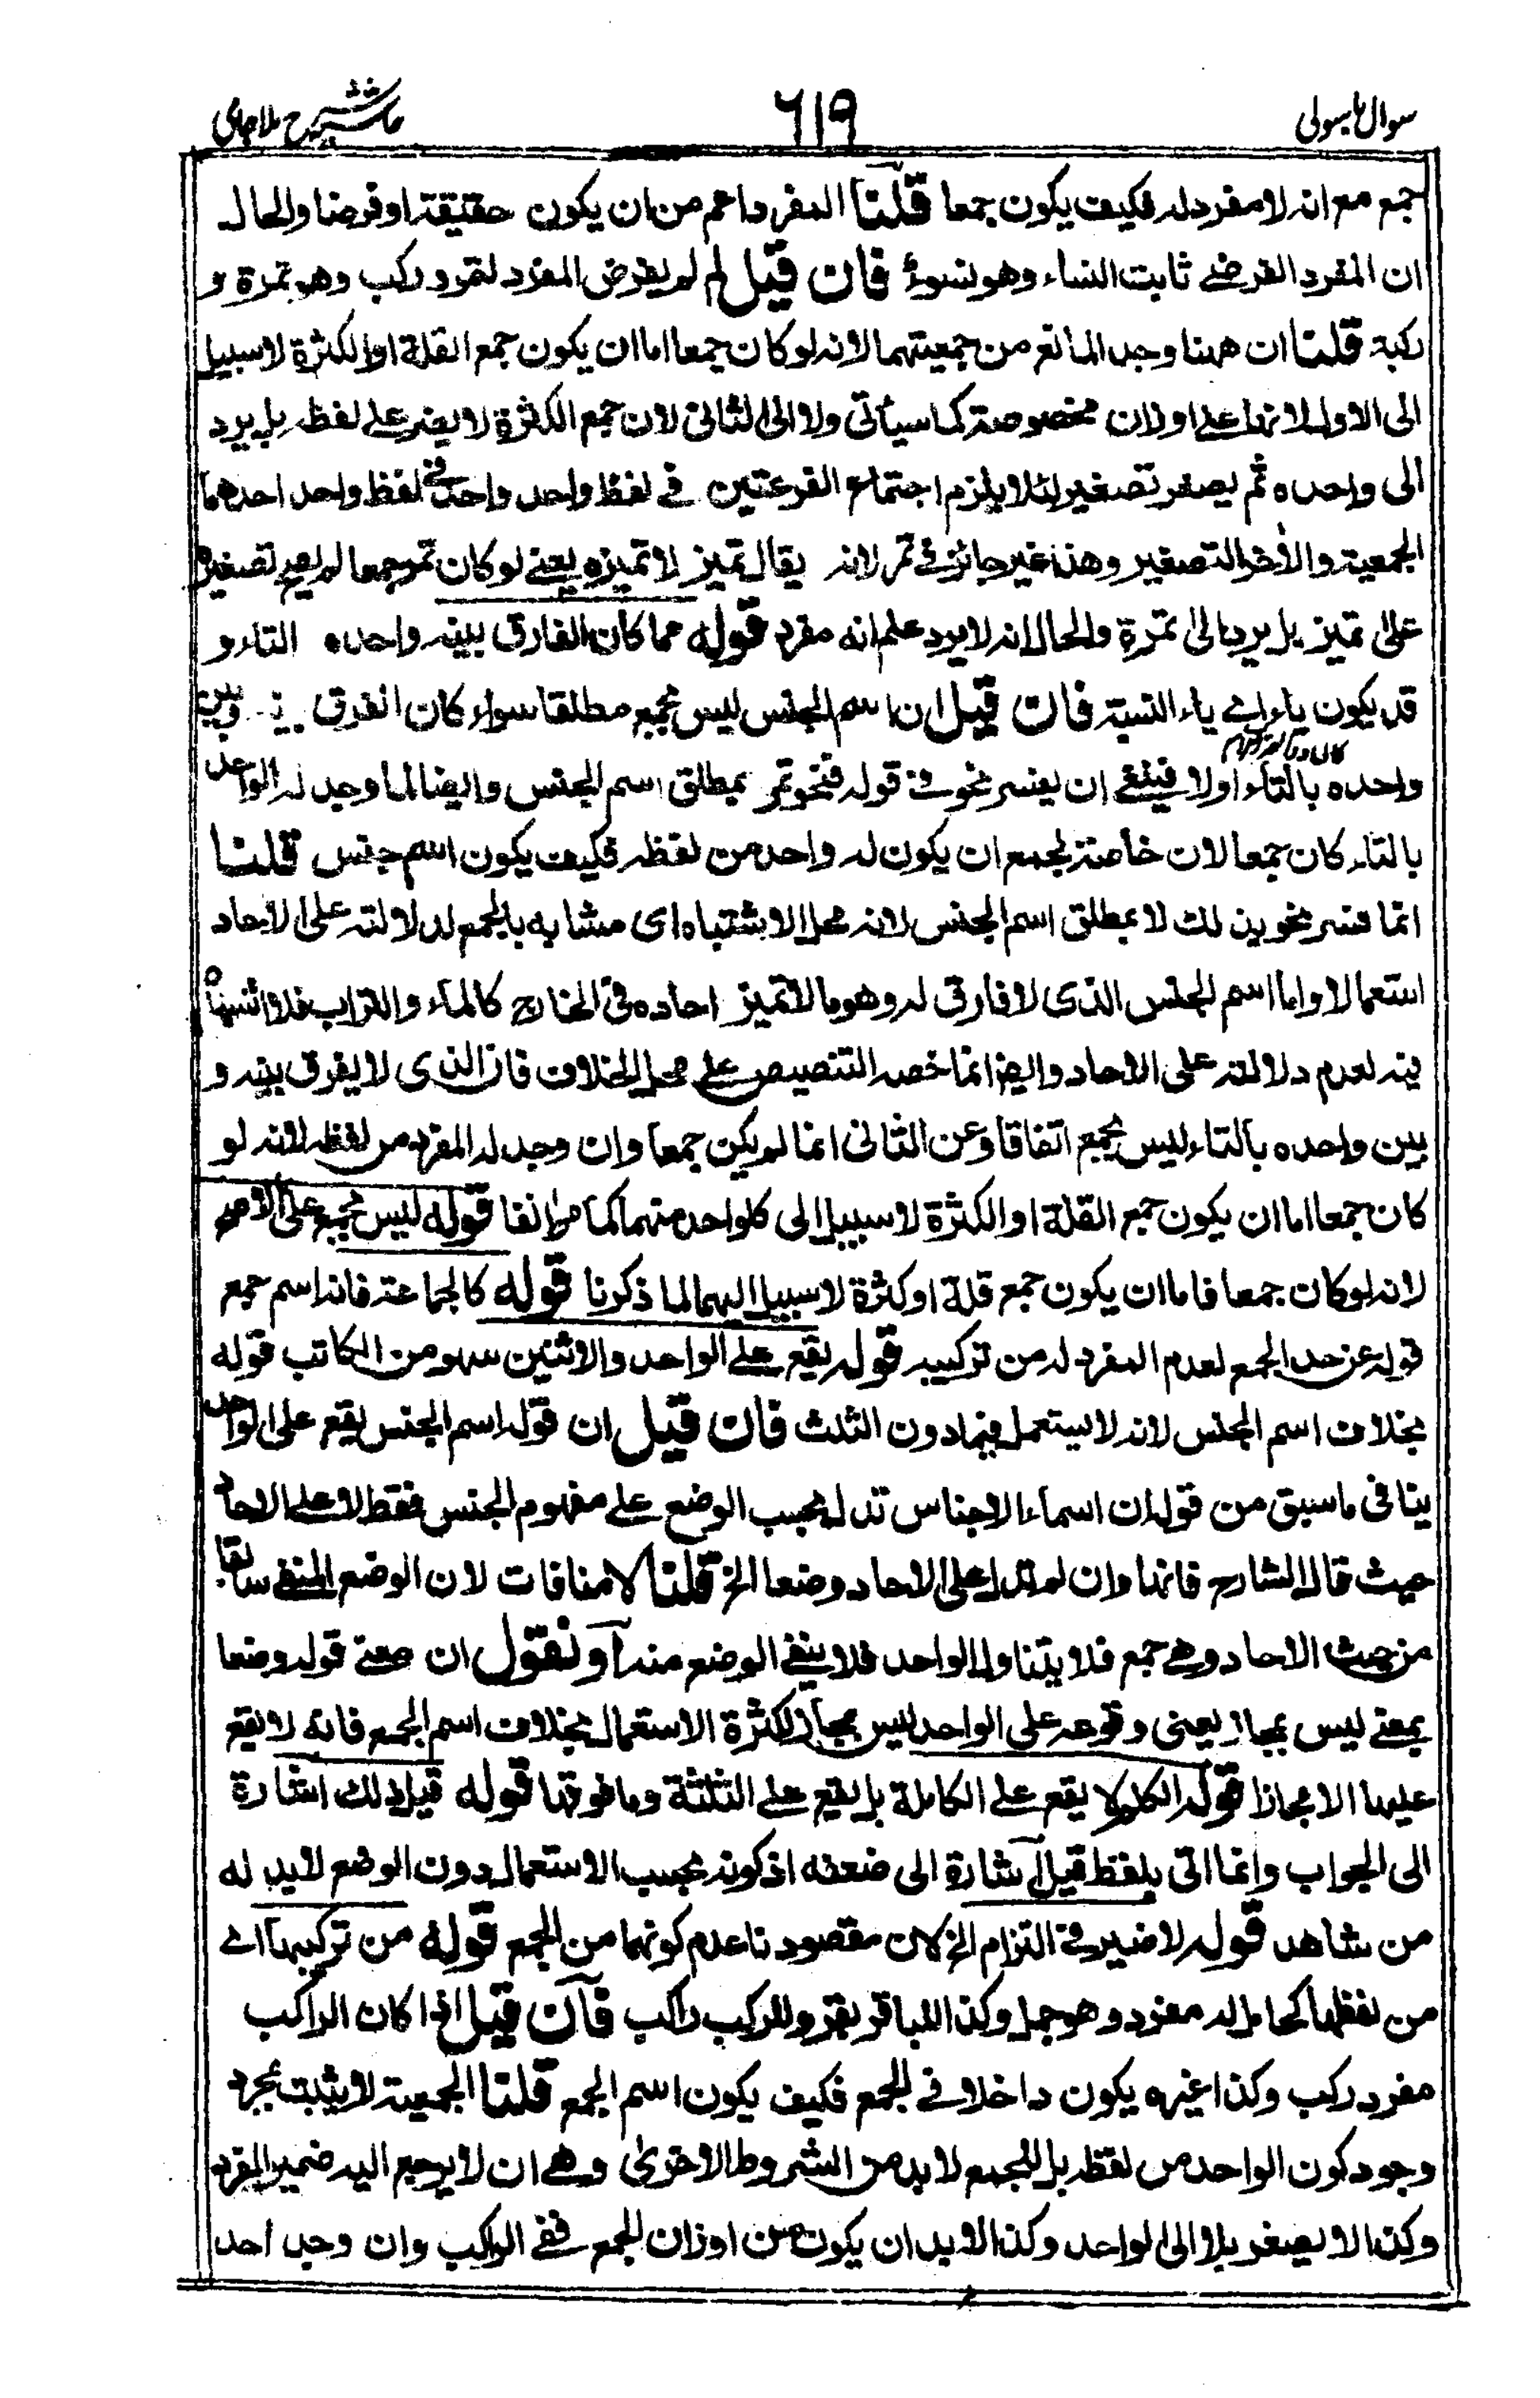 سوال باسولی ٦١٩ حاشیہ شرح ملا جامی
جمع مع انه لا مفرد له فكيف يكون جمعا قلنا المفرد اعم من ان يكون حقيقة او فرضا والحال
ان المفرد الفرضے ثابت النساء وهو نسوء فان قيل لم لم يفرض المفرد لتمر وركب وهو تمرة و
ركبة قلنا ان ههنا وجد المانع من جمعيتهما لانه لو كان جمعا اما ان يكون جمع القلة او الكثرة لا سبيل
الى الاول لانها على اوزان مخصوصة كما سيأتى ولا الى الثانى لان جمع الكثرة لا يصغر على لفظه بل يرد
الى واحده ثم يصغر تصغير لئلا يلزم اجتماع الفرعتين فى لفظ واحد واحد فى لفظ واحد احدهما
الجمعية والأخر التصغير وهذا غير جائز فى تمر لانه يقال تميز لا تميزه يعنے لو كان تمر جمعا لم يصح تصغيره
على تميز بل يرد الى تمرة والحال انه لا يرد علم انه مفرد قوله مما كان الفارق بينه واحده التاء و
قد يكون ياء اے ياء النسبة فان قيل ان اسم الجنس ليس بجمع مطلقا سواء كان الفرق وبين
واحده بالتاء او لا فينبغى ان يفسر نحو فى قوله فنحو تمر بمطلق اسم الجنس وايضا لما وجد له الواحد
بالتاء كان جمعا لان خاصة الجمع ان يكون له واحد من لفظه فكيف يكون اسم جنس قلنا
انما فسر نحو بذلك لا بمطلق اسم الجنس لانه محل الاشتباه اى مشابه بالجمع لدلالته على الاحاد
استعمالا واما اسم الجنس الذى لا فارق له وهو ما لا تميز احاده فى الخارج كالماء والتراب فلا اشتباه
فيه لعدم دلالته على الاحاد وايضا انما خصه التنصيص على محل الخلاف فان الذى لا يفرق بينه و
بين واحده بالتاء ليس بجمع اتفاقا وعن الثانى انما لم يكن جمعا وان وجد له المفرد من لفظه لانه لو
كان جمعا اما ان يكون جمع القلة او الكثرة لا سبيل الى كل واحد منهما كما مر انفا قوله ليس بجمع على الاصح
لانه لو كان جمعا فاما ان يكون جمع قلة او كثرة لا سبيل اليهما لما ذكرنا قوله كالجماعة فانه اسم جمع
قوله عن حد الجمع لعدم المفرد له من تركيبه قوله يقع على الواحد والاثنين سهو من الكاتب قوله
بخلاف اسم الجنس لانه لا يستعمل فيما دون الثلث فان قيل ان قوله اسم الجنس يقع على الواحد
ينافى ما سبق من قوله ان اسماء الاجناس تدل بحسب الوضع على مفهوم الجنس فقط لا على الاحاد
حيث قال الشارح فانها وان لم تدل على الاحاد وضعا الخ قلنا لا منافات لان الوضع المنفے سابقا
من حيث الاحاد وهے جمع فلا يتناول الواحد فلا ينفے الوضع منه او نقول ان معنے قوله وضعا
بمعنے ليس بمجاز يعنى وقوعه على الواحد ليس مجازا لكثرة الاستعمال بخلاف اسم الجمع فانه لا يقع
عليها الا مجازا قوله الكلم لا يقع على الكاملة بل يقع على الثلثة وما فوقها قوله قيل ذلك اشارة
الى الجواب وانما اتى بلفظ قيل اشارة الى ضعفه اذ كونه بحسب الاستعمال دون الوضع لا بد له
من شاهد قوله لا ضير فى التزام الخ لان مقصودنا عدم كونهما من الجمع قوله من تركيبها اے
من لفظها كجامل له مفرد وهو جمل وكذا الباقر بقر وللركب راكب فان قيل اذا كان الراكب
مفرد ركب وكذا غيره يكون داخلا فے الجمع فكيف يكون اسم الجمع قلنا الجمعية لا يثبت بمجرد
وجود كون الواحد من لفظه بل للجمع لا بد من الشروط الاخرى وهے ان لا يرجع اليه ضمير المفرد
وكذا لا يصغر بلا الى الواحد وكذا لا بد ان يكون من اوزان الجمع ففے الراكب وان وجد احد